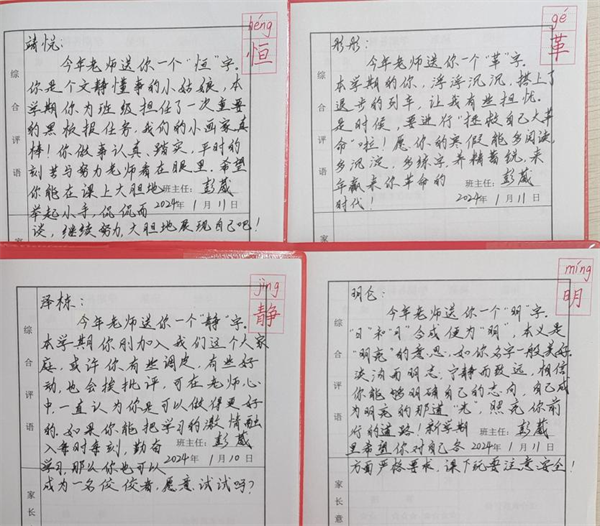 héng
恒
综合评语
靖悦:
今年老师送你一个“恒”字。
你是个文静懂事的小姑娘,本
学期你为班级担任了一次重要
的黑板报任务,我们的小画家真
棒!你做事认真、踏实,平时的
刻苦与努力老师看在眼里,希望
你能在课上大胆地
班主任:彭葳
举起小手,侃侃而
2024年1月11日
谈,继续努力,大胆地展现自己吧!
gé
革
综合评语
彤彤:
今年老师送你一个“革”字。
本学期的你,浮浮沉沉,搭上了
退步的列车,让我有些担忧。
是时候,要进行“拯救自己大革
命”啦!愿你的寒假能多阅读,
多沉淀,多练字,养精蓄锐,来
年赢来你革命的
班主任:彭葳
时代!
2024年1月11日
jìng
静
综合评语
泽栋:
今年老师送你一个“静”字。
本学期你刚加入我们这个大家
庭,或许你有些调皮,有些好
动,也会挨批评,可在老师心
中,一直认为你是可以做得更好
的。如果你能把学习的激情融
入每时每刻,勤奋
班主任:彭葳
学习,那么你也可以
2024年1月10日
成为一名佼佼者,愿意试试吗?
家长
míng
明
综合评语
明仓:
今年老师送你一个“明”字。
“日”和“月”合成便为“明”,本义是
“明亮”的意思,如你名字一般美好。
淡泊而明志,宁静而致远,相信
你能够明确自己的志向,自己成
为明亮的那道“光”,照亮你前
行的道路!新学期
班主任:彭葳
里希望你对自己各
2024年1月11日
方面严格要求,课下玩耍注意安全!
家长意